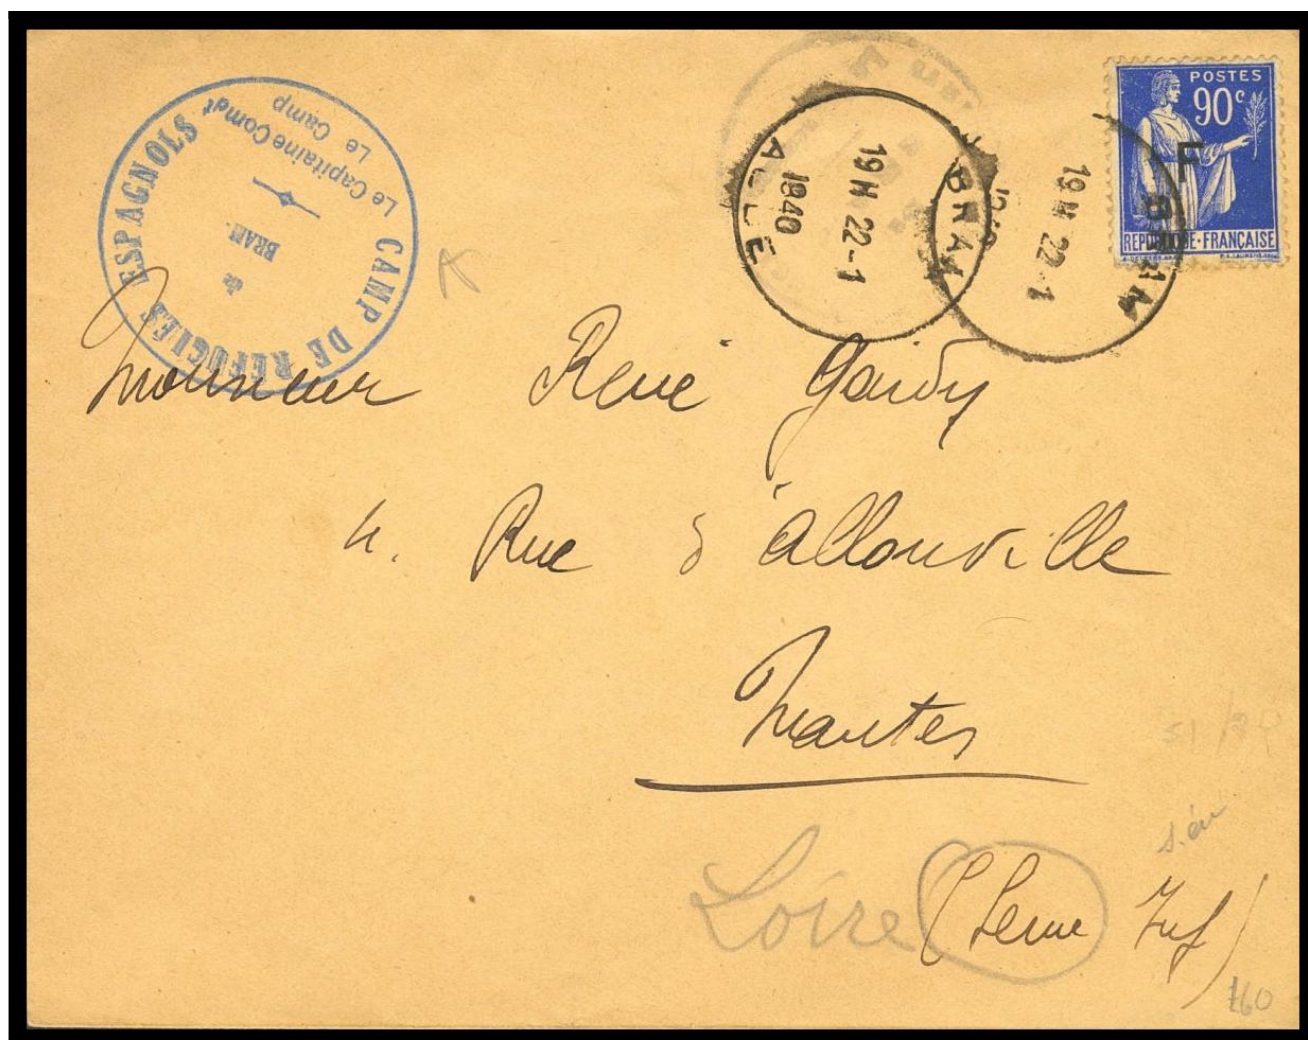 CAMP DE REFUGIES ESPAGNOLS
de
BRAM
Le Capitaine Comdt
Le Camp
BRAM
19H 22-1
1940
AUDE
BRAM
19H 22-1
1940
POSTES
90c
F
REPUBLIQUE-FRANÇAISE
Monsieur René Gardy
4. Rue d'Allonville
Nantes
Loire (Seine Inf)